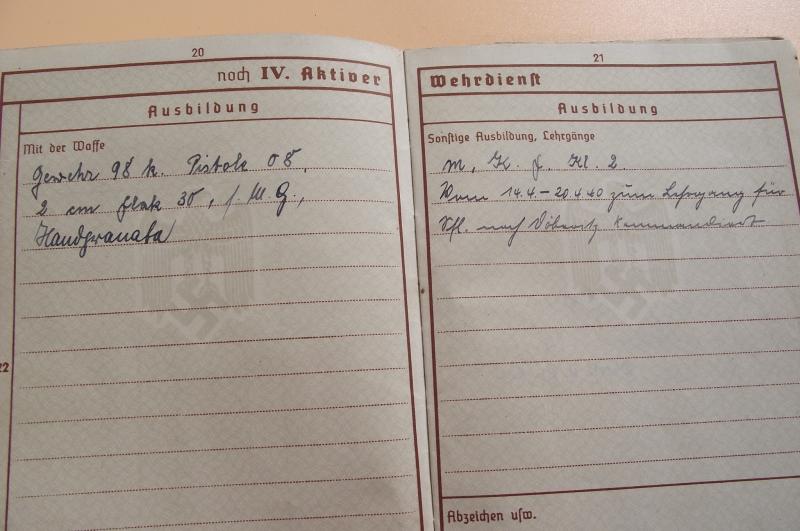 20
noch IV. Aktiver
Ausbildung
Mit der Waffe
Gewehr 98 k. Pistole 08,
2 cm Flak 30, l. M. G.,
Handgranate
22
21
Wehrdienst
Ausbildung
Sonstige Ausbildung, Lehrgänge
m. K. f. Kl. 2.
Vom 14.4. – 20.4.40 zum Lehrgang für
nach Döberitz kommandiert
Abzeichen usw.